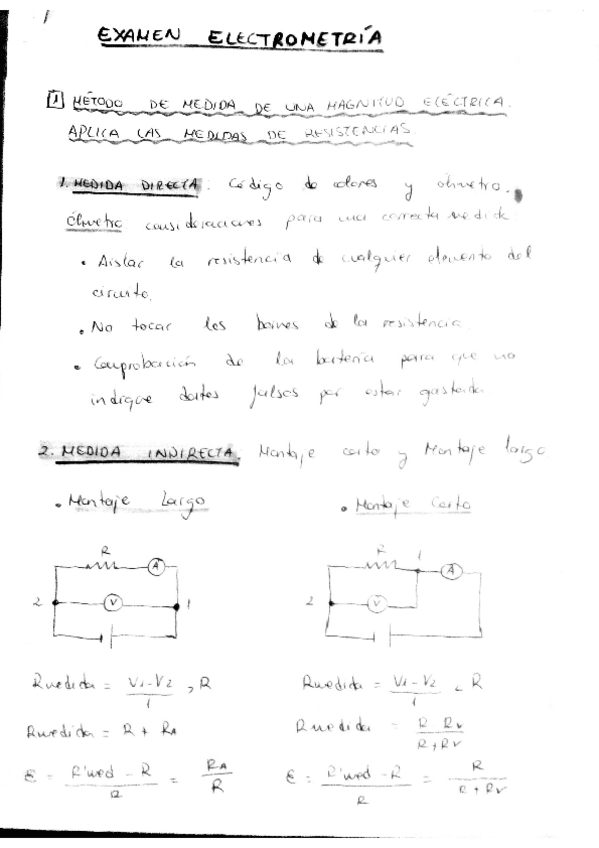 1
EXAMEN ELECTROMETRÍA
1 MÉTODO DE MEDIDA DE UNA MAGNITUD ELÉCTRICA.
APLICA LAS MEDIDAS DE RESISTENCIAS
1. MEDIDA DIRECTA: Código de colores y óhmetro.
Óhmetro consideraciones para una correcta medida
• Aislar la resistencia de cualquier elemento del
circuito.
• No tocar los bornes de la resistencia
• Comprobación de la batería para que no
indique datos falsos por estar gastada
2. MEDIDA INDIRECTA. Montaje corto y Montaje largo
• Montaje Largo
• Montaje Corto
R
A
2
V
1
R
1
A
2
V
Rmedida = V1-V2 / I > R
Rmedida = R + RA
ε = R'med - R / R = RA / R
Rmedida = V1-V2 / I < R
Rmedida = R RV / R+RV
ε = R'med - R / R = R / R+RV